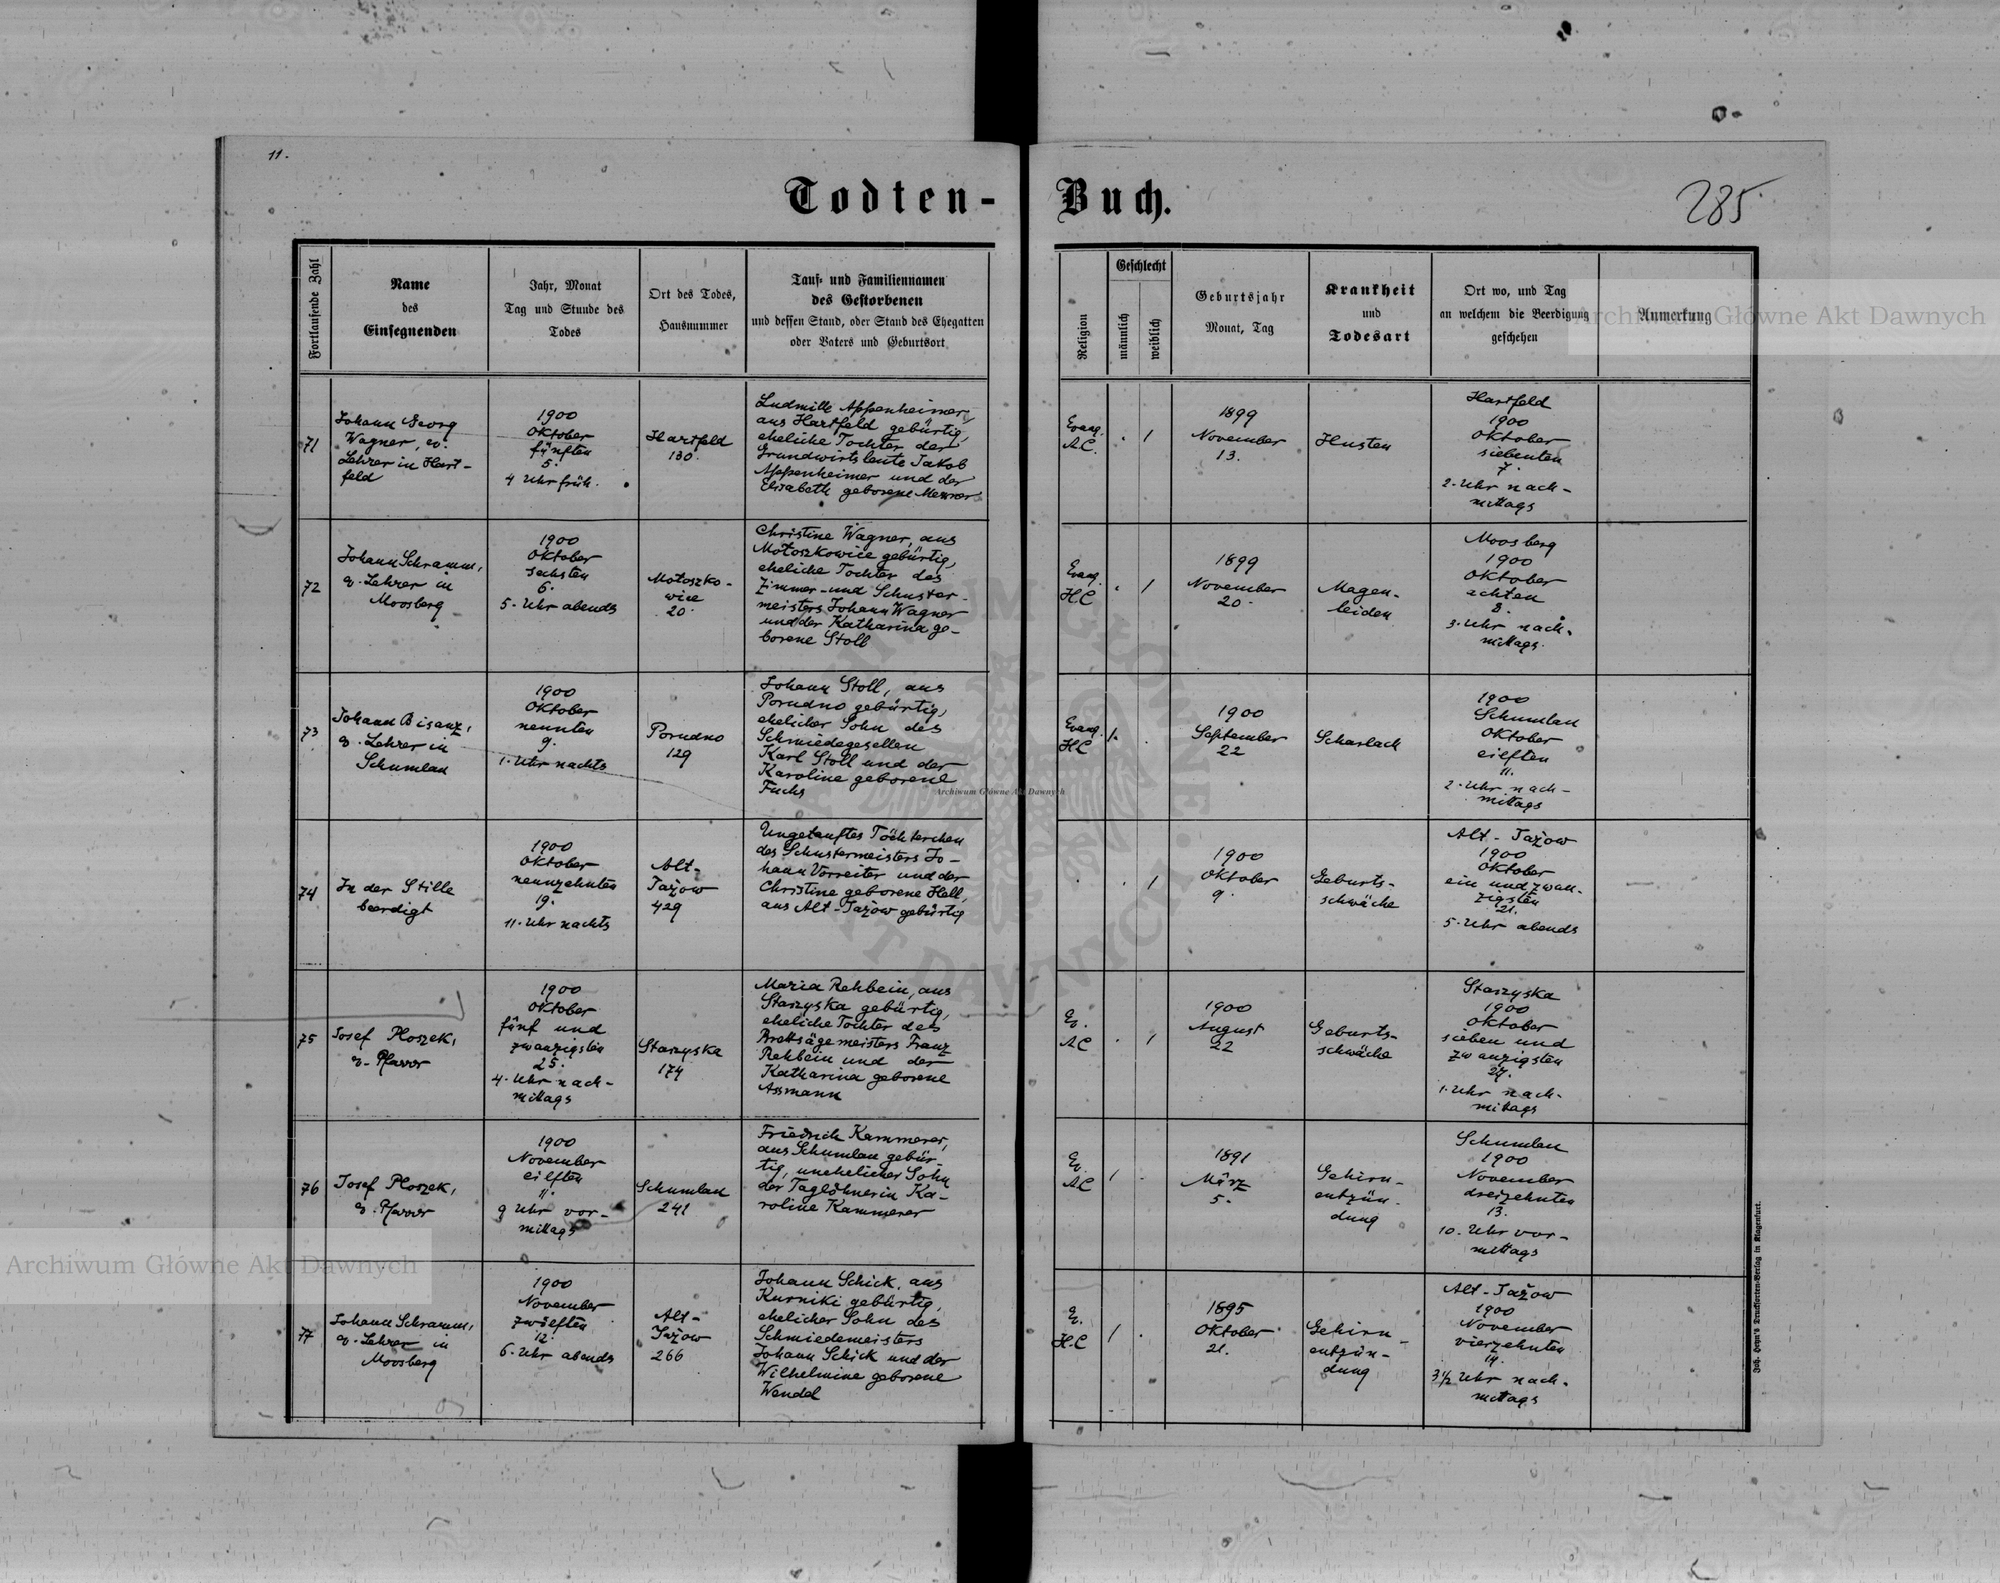 11.
Todten-Buch.
285
Fortlaufende Zahl
Name
des
Einsegnenden
Jahr, Monat
Tag und Stunde des
Todes
Ort des Todes,
Hausnummer
Tauf- und Familiennamen
des Gestorbenen
und dessen Stand, oder Stand des Ehegatten
oder Vaters und Geburtsort
Religion
Geschlecht
männlich
weiblich
Geburtsjahr
Monat, Tag
Krankheit
und
Todesart
Ort wo, und Tag
an welchem die Beerdigung
geschehen
Anmerkung
71
Johann Georg
Wagner, ev.
Lehrer in Hart-
feld
1900
Oktober
fünften
5.
4 Uhr früh.
Hartfeld
130.
Ludmille Appenheimer,
aus Hartfeld gebürtig,
eheliche Tochter der
Grundwirtsleute Jakob
Appenheimer und der
Elisabeth geborene
Evang.
A.C.
1
1899
November
13.
Husten
Hartfeld
1900
Oktober
siebenten
7.
2. Uhr nach-
mittags
72
Johann Schramm,
ev. Lehrer in
Moosberg
1900
Oktober
sechsten
6.
5. Uhr abends
Motoszko-
wice
20.
Christine Wagner, aus
Motoszkowice gebürtig,
eheliche Tochter des
Zimmer- und Schuster-
meisters Johann Wagner
und der Katharina ge-
borene Stoll
Evang.
HC
1
1899
November
20.
Magen-
leiden
Moosberg
1900
Oktober
achten
8.
3. Uhr nach-
mittags.
73
Johann Bisanz,
ev. Lehrer in
Schumlau
1900
Oktober
neunten
9.
1. Uhr nachts
Porudno
129
Johann Stoll, aus
Porudno gebürtig,
ehelicher Sohn des
Schmiedegesellen
Karl Stoll und der
Karoline geborene
Fuchs
Evang.
HC
1.
1900
September
22
Scharlach
1900
Schumlau
Oktober
eilften
11.
2. Uhr nach-
mittags
74
In der Stille
beerdigt
1900
Oktober
neunzehnten
19.
11. Uhr nachts
Alt-
Jażow
429
Ungetauftes Töchterchen
des Schustermeisters Jo-
hann Vorreiter und der
Christine geborene Hell,
aus Alt-Jażow gebürtig
1
1900
Oktober
9.
Geburts-
schwäche
Alt-Jażow
1900
Oktober
ein und zwan-
zigsten
21.
5. Uhr abends
75
Josef Ploszek,
ev. Pfarrer
1900
Oktober
fünf und
zwanzigsten
25.
4. Uhr nach-
mittags
Starzyska
174
Maria Rehbein, aus
Starzyska gebürtig,
eheliche Tochter des
Brettsägemeisters Franz
Rehbein und der
Katharina geborene
Assmann
Ev.
AC
1
1900
August
22
Geburts-
schwäche
Starzyska
1900
Oktober
sieben und
zwanzigsten
27.
1. Uhr nach-
mittags
76
Josef Ploszek,
ev. Pfarrer
1900
November
eilften
11.
9 Uhr vor-
mittags
Schumlau
241
Friedrich Kammerer,
aus Schumlau gebür-
tig, unehelicher Sohn
der Taglöhnerin Ka-
roline Kammerer
Ev.
AC
1
1891
März
5.
Gehirn-
entzün-
dung
Schumlau
1900
November
dreizehnten
13.
10. Uhr vor-
mittags
77
Johann Schramm,
ev. Lehrer in
Moosberg
1900
November
zwölften
12.
6. Uhr abends
Alt-
Jażow
266
Johann Schick, aus
Kurniki gebürtig,
ehelicher Sohn des
Schmiedemeisters
Johann Schick und der
Wilhelmine geborene
Wendel
Ev.
H.C
1
1895
Oktober
21.
Gehirn-
entzün-
dung
Alt-Jażow
1900
November
vierzehnten
14.
3½ Uhr nach-
mittags
Joh. Heyn's Drucksorten-Verlag in Klagenfurt.
Archiwum Główne Akt Dawnych
Archiwum Główne Akt Dawnych
Archiwum Główne Akt Dawnych
ARCHIWUM GŁÓWNE AKT DAWNYCH